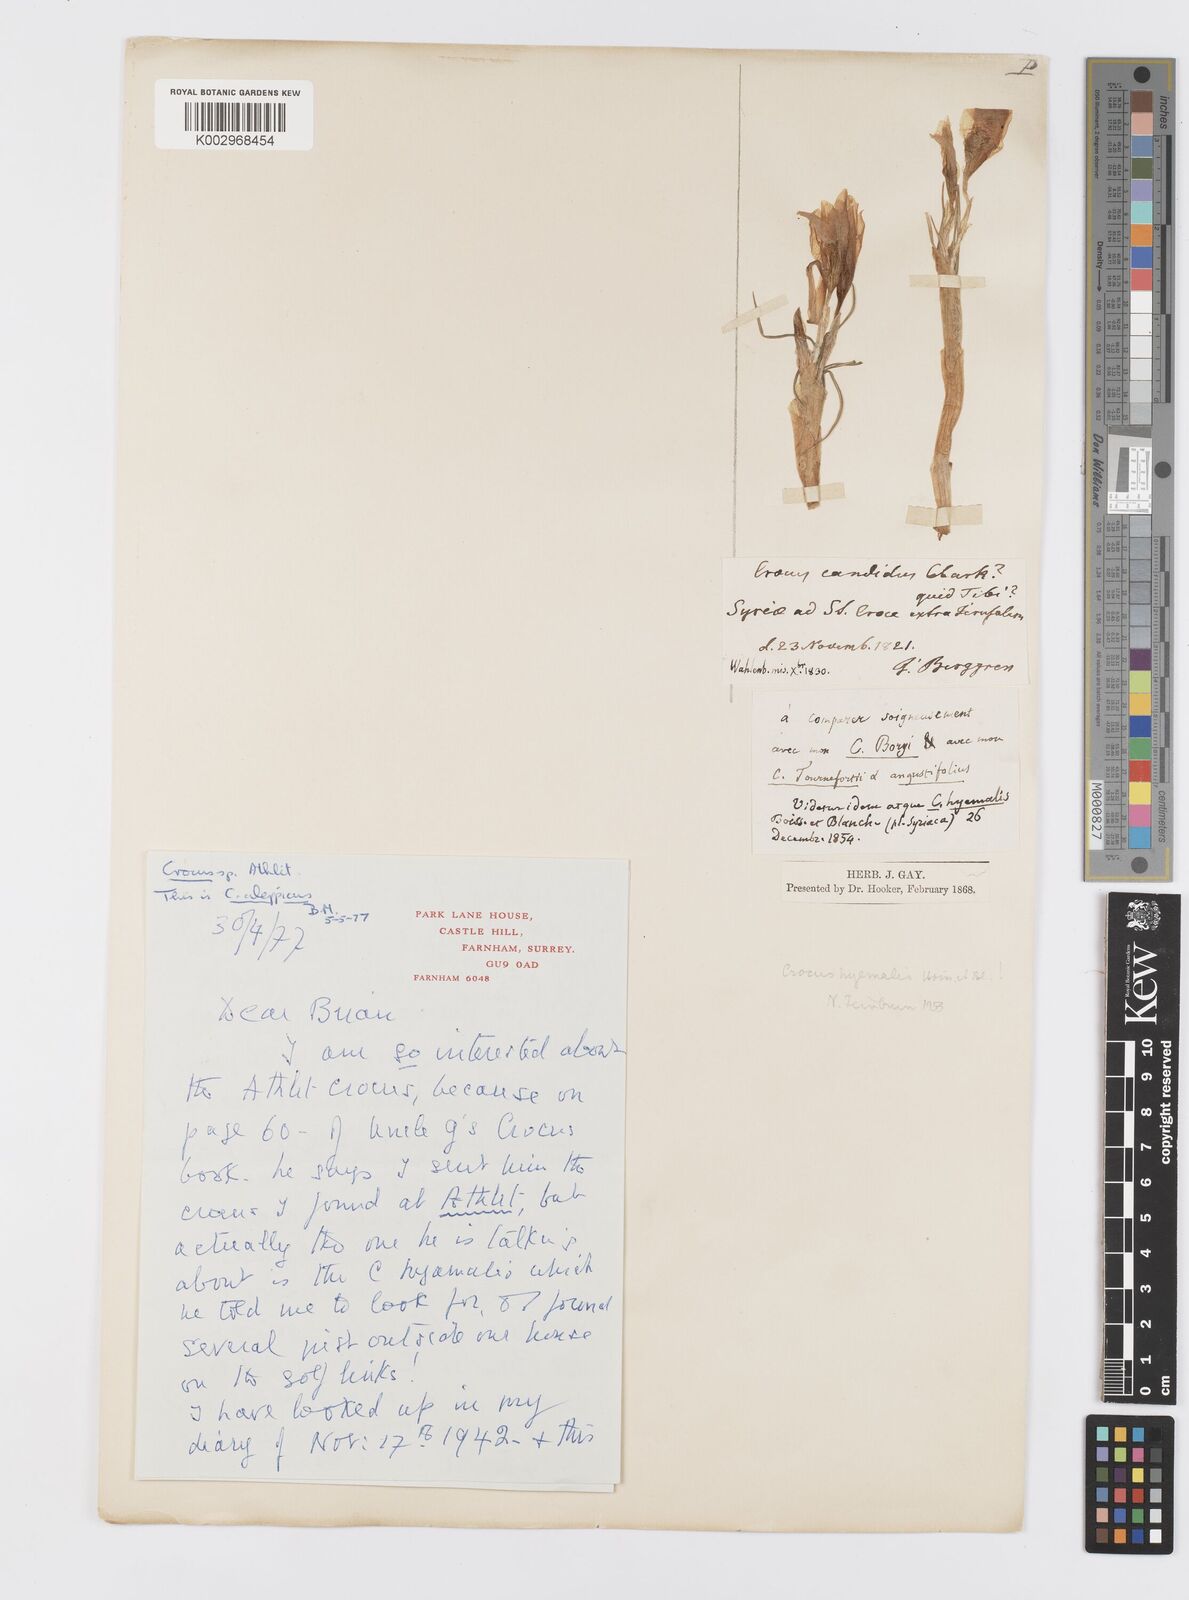 P
ROYAL BOTANIC GARDENS KEW
K002968454
Crocus candidus Clark?
quid Tibi?
Syriæ ad St. Croce extra Jerusalem
d. 23 Novemb. 1821.
Wahlenb. mis. Xbr. 1830. J. Berggren
à comparer soigneusement
avec mon C. Boryi & avec mon
C. Tournefortii α angustifolius
Videtur idem atque C. hyemalis
Boiss. et Blanche (pl. Syriaca) 26
Decembr. 1854.
HERB. J. GAY.
Presented by Dr. Hooker, February 1868.
Crocus hyemalis Boiss. et Bl.!
N. Feinbrun 1953
Crocus sp. Athlit.
This is C. aleppicus
B.M.
5-5-77
30/4/77
PARK LANE HOUSE,
CASTLE HILL,
FARNHAM, SURREY.
GU9 0AD
FARNHAM 6048
Dear Brian
I am so interested about
the Athlit crocus, because on
page 60 - of Uncle G's Crocus
book. he says I sent him the
crocus I found at Athlit, but
actually the one he is talking
about is the C hyamalis which
he told me to look for, & I found
several just outside our house
on the golf links!
I have looked up in my
diary of Nov: 17th 1942 - + this
inches
centimetres
Density
Don Williams
M000827
KEW
Royal Botanic Gardens
copyright reserved
0 1 2 3 4 5 6 7 8 9 10
cm